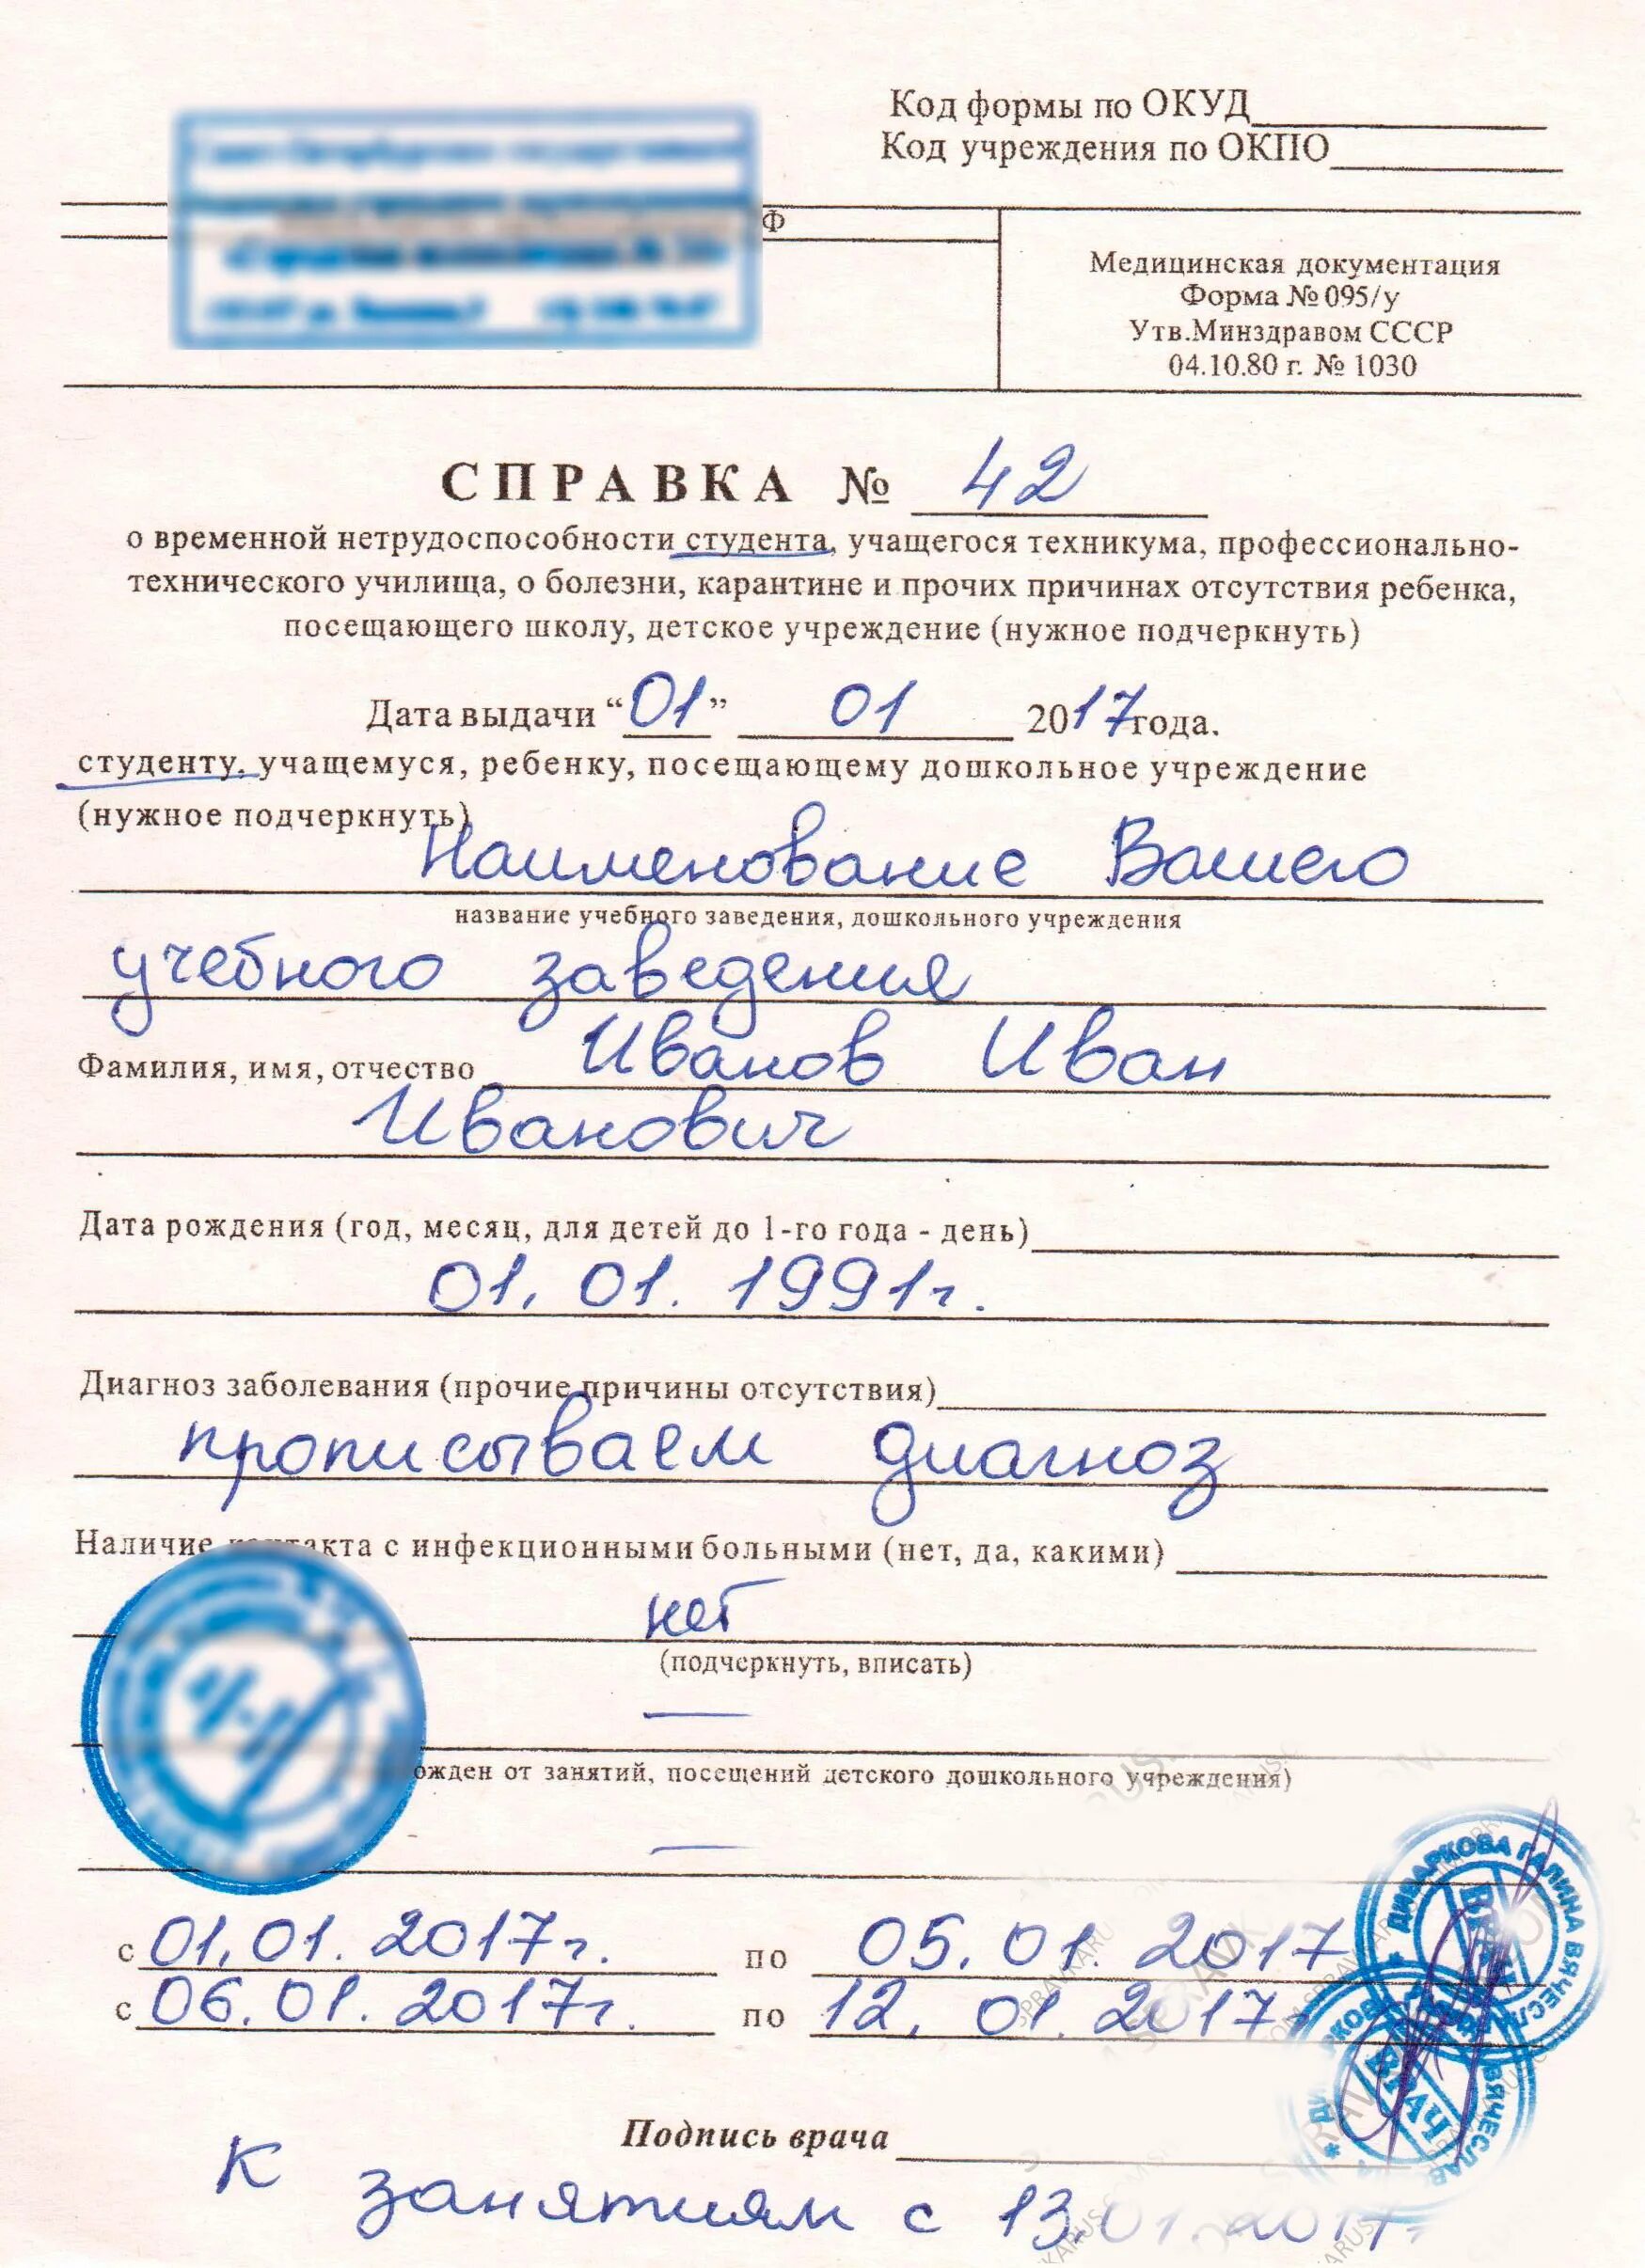 Код формы по ОКУД
Код учреждения по ОКПО
Ф
Медицинская документация
Форма № 095/у
Утв.Минздравом СССР
04.10.80 г. № 1030
СПРАВКА № 42
о временной нетрудоспособности студента, учащегося техникума, профессионально-
технического училища, о болезни, карантине и прочих причинах отсутствия ребенка,
посещающего школу, детское учреждение (нужное подчеркнуть)
Дата выдачи “01” 01 2017 года.
студенту, учащемуся, ребенку, посещающему дошкольное учреждение
(нужное подчеркнуть)
Наименование Вашего
название учебного заведения, дошкольного учреждения
учебного заведения
Фамилия, имя, отчество Иванов Иван
Иванович
Дата рождения (год, месяц, для детей до 1-го года - день)
01. 01. 1991г.
Диагноз заболевания (прочие причины отсутствия)
прописываем диагноз
Наличие контакта с инфекционными больными (нет, да, какими)
нет
(подчеркнуть, вписать)
—
ожден от занятий, посещений детского дошкольного учреждения)
—
с 01.01.2017г. по 05.01.2017
с 06.01.2017г. по 12.01.2017г
ДИВАРКОВА ГАЛИНА ВЯЧЕСЛ
ВРАЧ
ВЯЧЕСЛАВ
ВРАЧ
Подпись врача
К занятиям с 13.01.2017г.